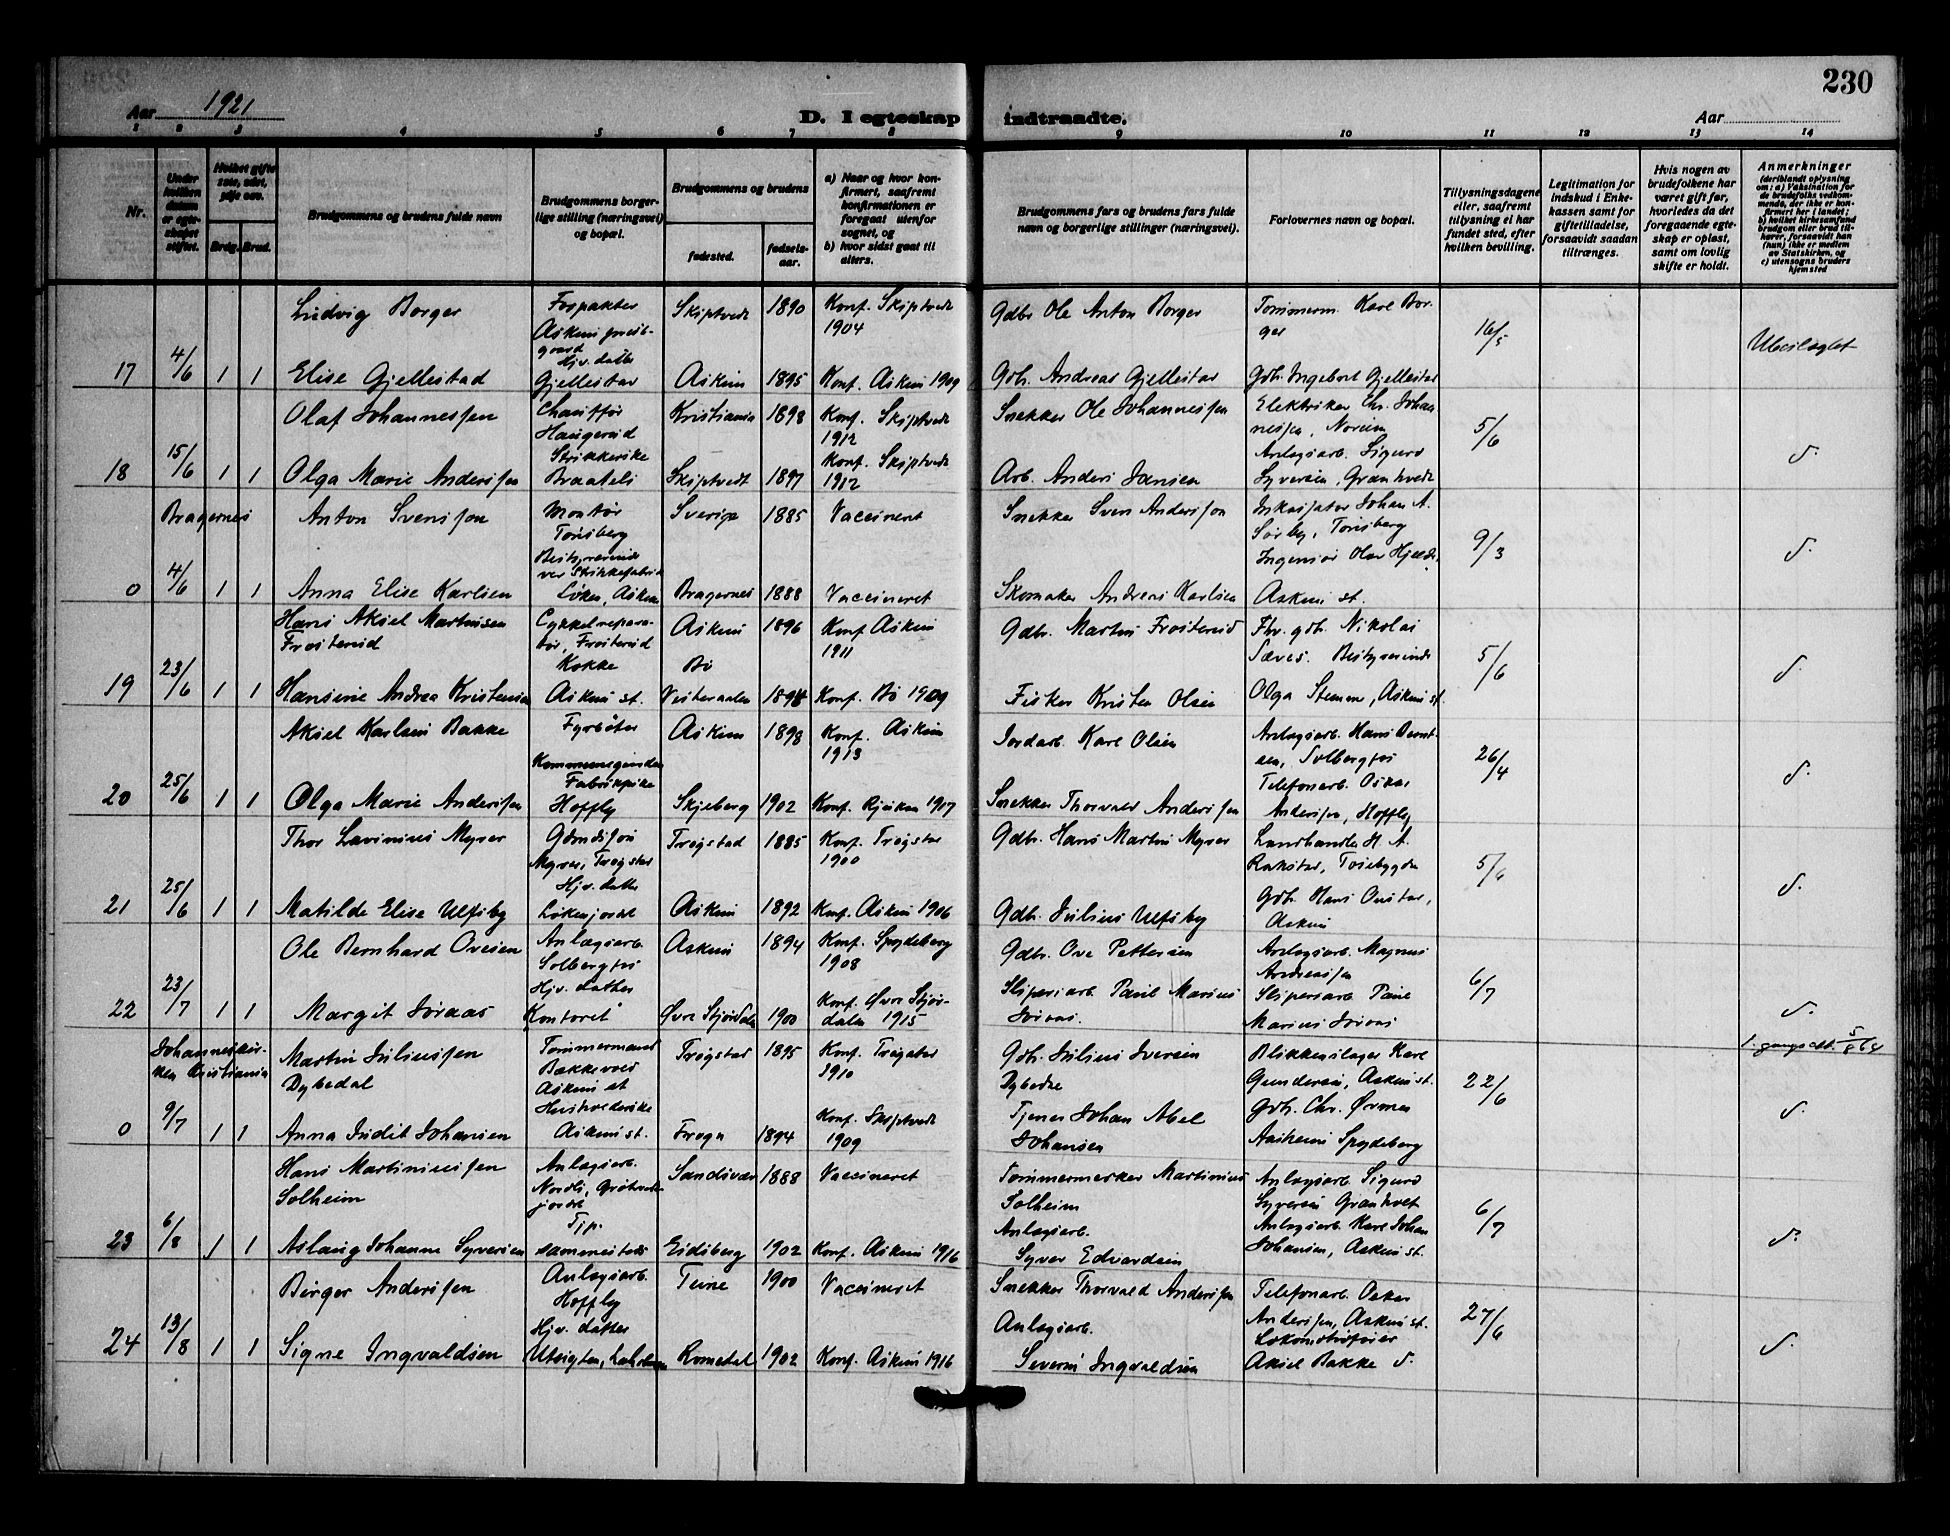 230
Aar 1921
D. I egteskap indtraadte.
Aar
1 2 3 4 5 6 7 8 9 10 11 12 13 14
Nr.
Under hvilken datum er egteskapet stiftet.
Hvilket gifte sete, sdet, gifte osv.
Brdg. Brud.
Brudgommens og brudens fulde navn
Brudgommens borgerlige stilling (næringsvei) og bopæl.
Brudgommens og brudens
fødested.
fødselsaar.
a) Naar og hvor konfirmert, saafremt konfirmationen er foregaat utenfor sognet, og
b) hvor sidst gaat til alters.
Brudgommens fars og brudens fars fulde navn og borgerlige stillinger (næringsvei).
Forlovernes navn og bopæl.
Tillysningsdagene eller, saafremt tillysning ei har fundet sted, efter hvilken bevilling.
Legitimation for indskud i Enkekassen samt for giftetilladelse, forsaavidt saadan tiltrænges.
Hvis nogen av brudefolkene har været gift før, hvorledes da det foregaaende egteskap er opløst, samt om lovlig skifte er holdt.
Anmerkninger
(deriblandt oplysning om: a) Vaksination for de brudefolks vedkommende, der ikke er konfirmert her i landet;
b) hvilket kirkesamfund brudgom eller brud tilhører, forsaavidt han (hun) ikke er medlem av Statskirken, og
c) utensogns bruders hjemsted
Ludvig Borger Forpakter Skiptvedt 1890 Konf. Skiptvedt 1904 Gdbr Ole Anton Borger Tømmerm. Karl Borger 16/5
Askim prestegaard
17 4/6 1 1 Elise Gjellestad Hjv. datter Gjellestad Askim 1895 Konf. Askim 1909 Gdb. Andreas Gjellestad Gdb. Ingebort Gjellestad Ubeslegtet
Olaf Johannessen Chauffør Haugerud Kristiania 1898 Konf. Skiptvedt 1912 Snekker Ole Johannessen Elektriker Chr. Johannessen, Noreim 5/6
18 15/6 1 1 Olga Marie Anderssen Strikkerske Braateli Skiptvedt 1897 Konf. Skiptvedt 1912 Arb. Anders Jansen Anlægsarb. Sigurd Syversen, Granhvedt
Bragernes Anton Svenssen Montør Tønsberg Sverige 1885 Vaccineret Snekker Sven Anderssen Inkassator Johan A. Sørby, Tønsberg 9/3
0 4/6 1 1 Anna Elise Karlsen Løken, Askim Bragernes 1888 Vaccineret Skomaker Andreas Karlsen Ingeniør Olav Hjelde, Askim st.
Hans Aksel Martinsen Frøsterud Cykkelreparatør, Frøsterud Askim 1896 Konf Askim 1911 Gdbr. Martin Frøsterud Fhv. gdb. Nikolai Sæves. 5/6
19 23/6 1 1 Hansine Andrea Kristensen Kokke Askim st. Bø Vesteraalen 1894 Konf. Bø 1909 Fisker Kristen Olsen Bestyrerinde Olga Stemme, Askim st.
Aksel Karlsen Bakke Fyrbøter Askim 1898 Konf. Askim 1913 Jordarb. Karl Olsen Anlægsarb. Hans Berntsen, Solbergfos 26/4
Kommunegaarden
20 25/6 1 1 Olga Marie Anderssen Fabrikpike Hoffly Skjeberg 1902 Konf. Rjukan 1917 Snekker Thorvald Anderssen Telefonarb. Oskar Anderssen, Hoffly
Thor Lavinius Myrer Gdmdssøn Myrer, Trøgstad Trøgstad 1885 Konf. Trøgstad 1900 Gdbr. Hans Martin Myrer Landhandler H. A. Rakstad, Tosebygden 5/6
21 25/6 1 1 Matilde Elise Ulfsby Hjv. datter Løkenjordet Askim 1892 Konf. Askim 1906 Gdbr. Julius Ulfsby Gdb. Hans Onstad, Askim
Ole Bernhard Ovesen Anlægsarb. Solbergfos Askim 1894 Konf. Spydeberg 1908 Gdbr. Ove Pettersen Anlægsarb. Magnus Andreassen 6/7
22 23/7 1 1 Margit Joraas Hjv. datter Kontoret Øvre Stjørdalen 1900 Konf. Øvre Stjørdalen 1915 Sliperiarb. Paul Marius Joraas. Sliperiarb. Paul Marius Joraas
Johanneskirken Kristiania Martin Juliussen Dybedal Tømmermand Bækkevar Askim st Trøgstad 1895 Konf. Trøgstad 1910 Gdb. Julius Iversen Dybedal Blikkenslager Karl Gundersen, Askim st. 22/6
0 9/7 1 1 Anna Judit Johansen Husholderske Askim st. Frogn 1894 Konf. Skiptvedt 1909 Tjener Johan Abel Johansen Gdb. Chr. Ørmen Aasheim Spydeberg
Hans Martiniussen Solheim Anlægsarb. Nordli, Grøtvedtjordet Sandsvær 1888 Vaccineret Tømmermerker Martinius Solheim Anlægsarb Sigurd Syversen Granhvet 6/7
23 6/8 1 1 Aslaug Johanne Syversen Tjp. sammesteds Eidsberg 1902 Konf. Askim 1916 Anlægsarb. Syver Edvardsen Anlægsarb Karl Johan Johansen, Askim st.
Birger Anderssen Anlægsarb. Hoffly Tune 1900 Vaccineret Snekker Thorvald Anderssen Telefonarb Oskar Anderssen, Askim st. 27/6
24 13/8 1 1 Signe Ingvaldsen Hjv. datter Utsigten, Romedal 1902 Konf. Askim 1916 Anlægsarb. Severin Ingvaldsen Lokomotivfører Aksel Bakke